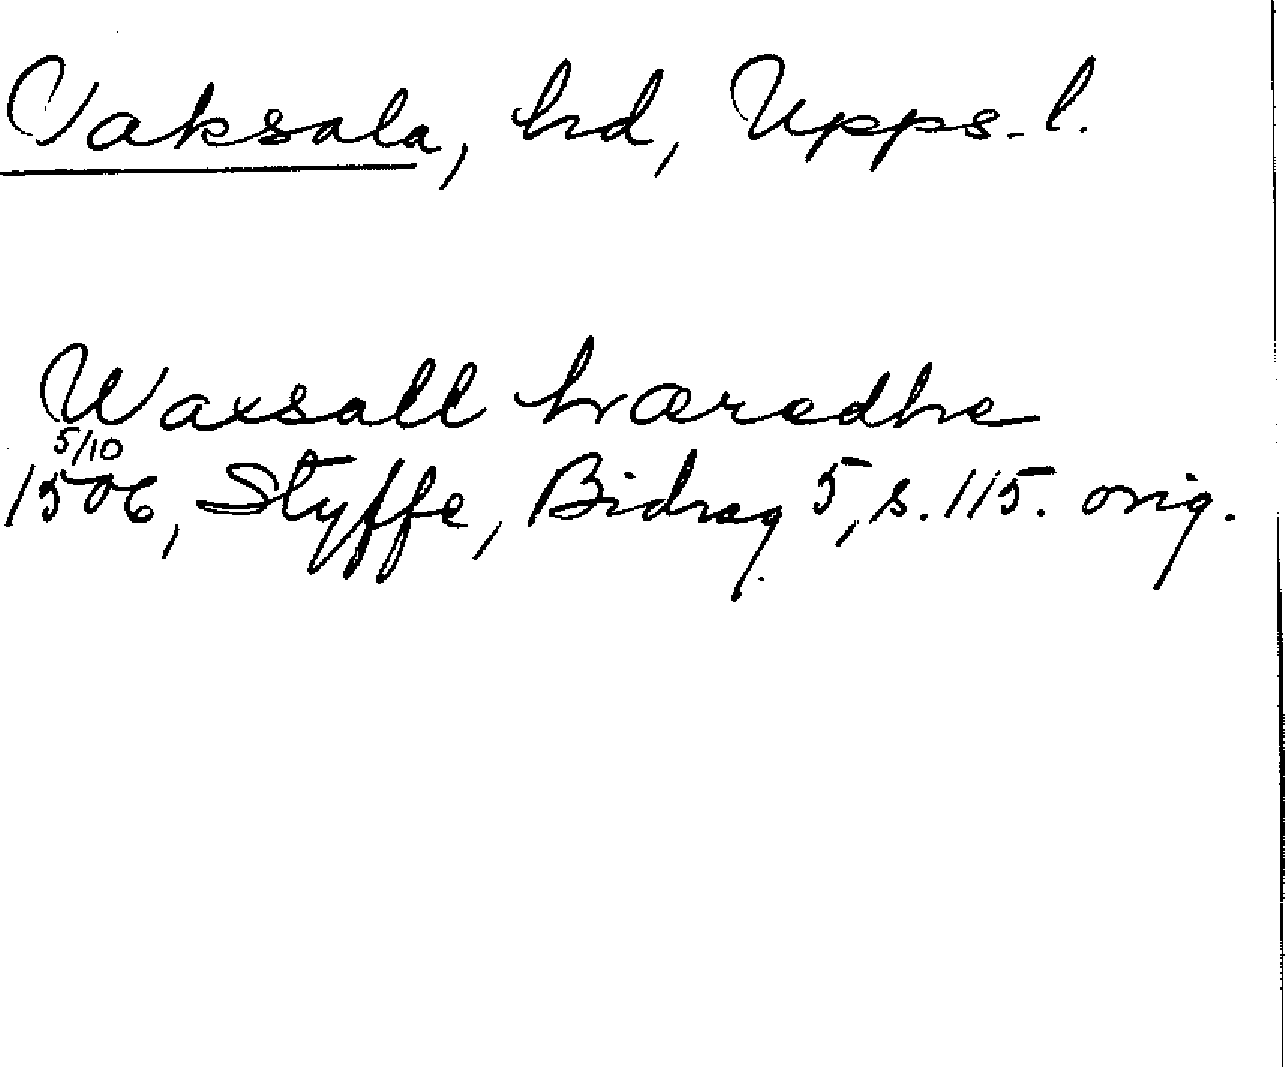 Vaksala, hd, Upps. l.
Waxsall hæredhe
5/10
1506, Styffe, Bidrag 5, s. 115. orig.